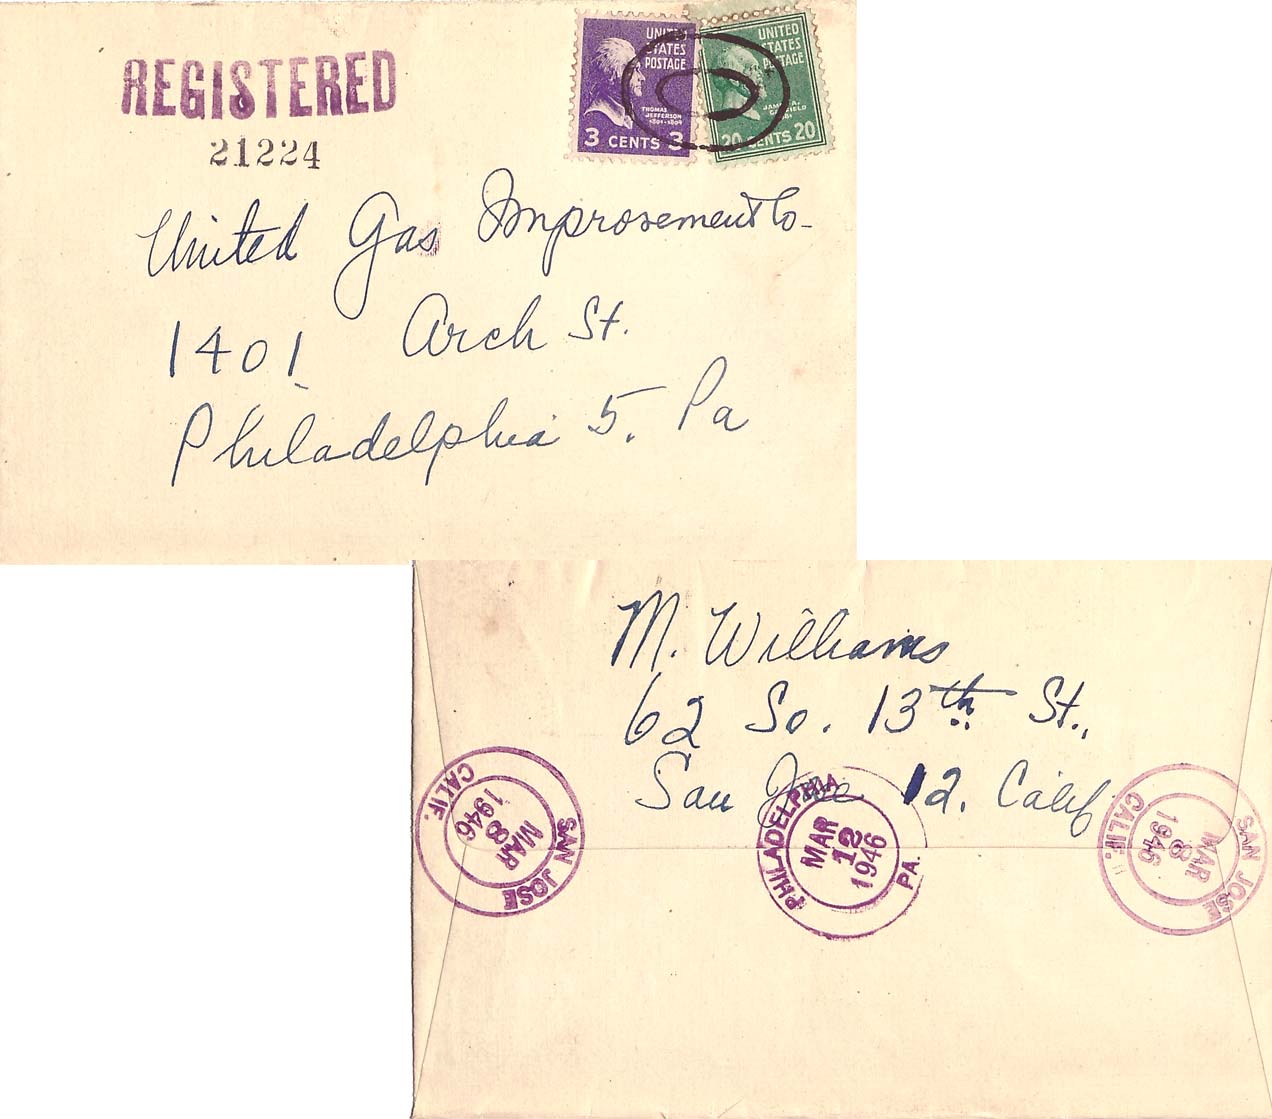 REGISTERED
21224
UNITED
STATES
POSTAGE
THOMAS
JEFFERSON
1801-1809
3 CENTS 3
UNITED
STATES
POSTAGE
JAMES A.
GARFIELD
20 CENTS 20
United Gas Improvement Co-
1401 Arch St.
Philadelphia 5, Pa
M. Williams
62 So. 13th St.,
San Jose 12, Calif
SAN JOSE
MAR
8
1946
CALIF.
PHILADELPHIA
MAR
12
1946
PA.
SAN JOSE
MAR
8
1946
CALIF.